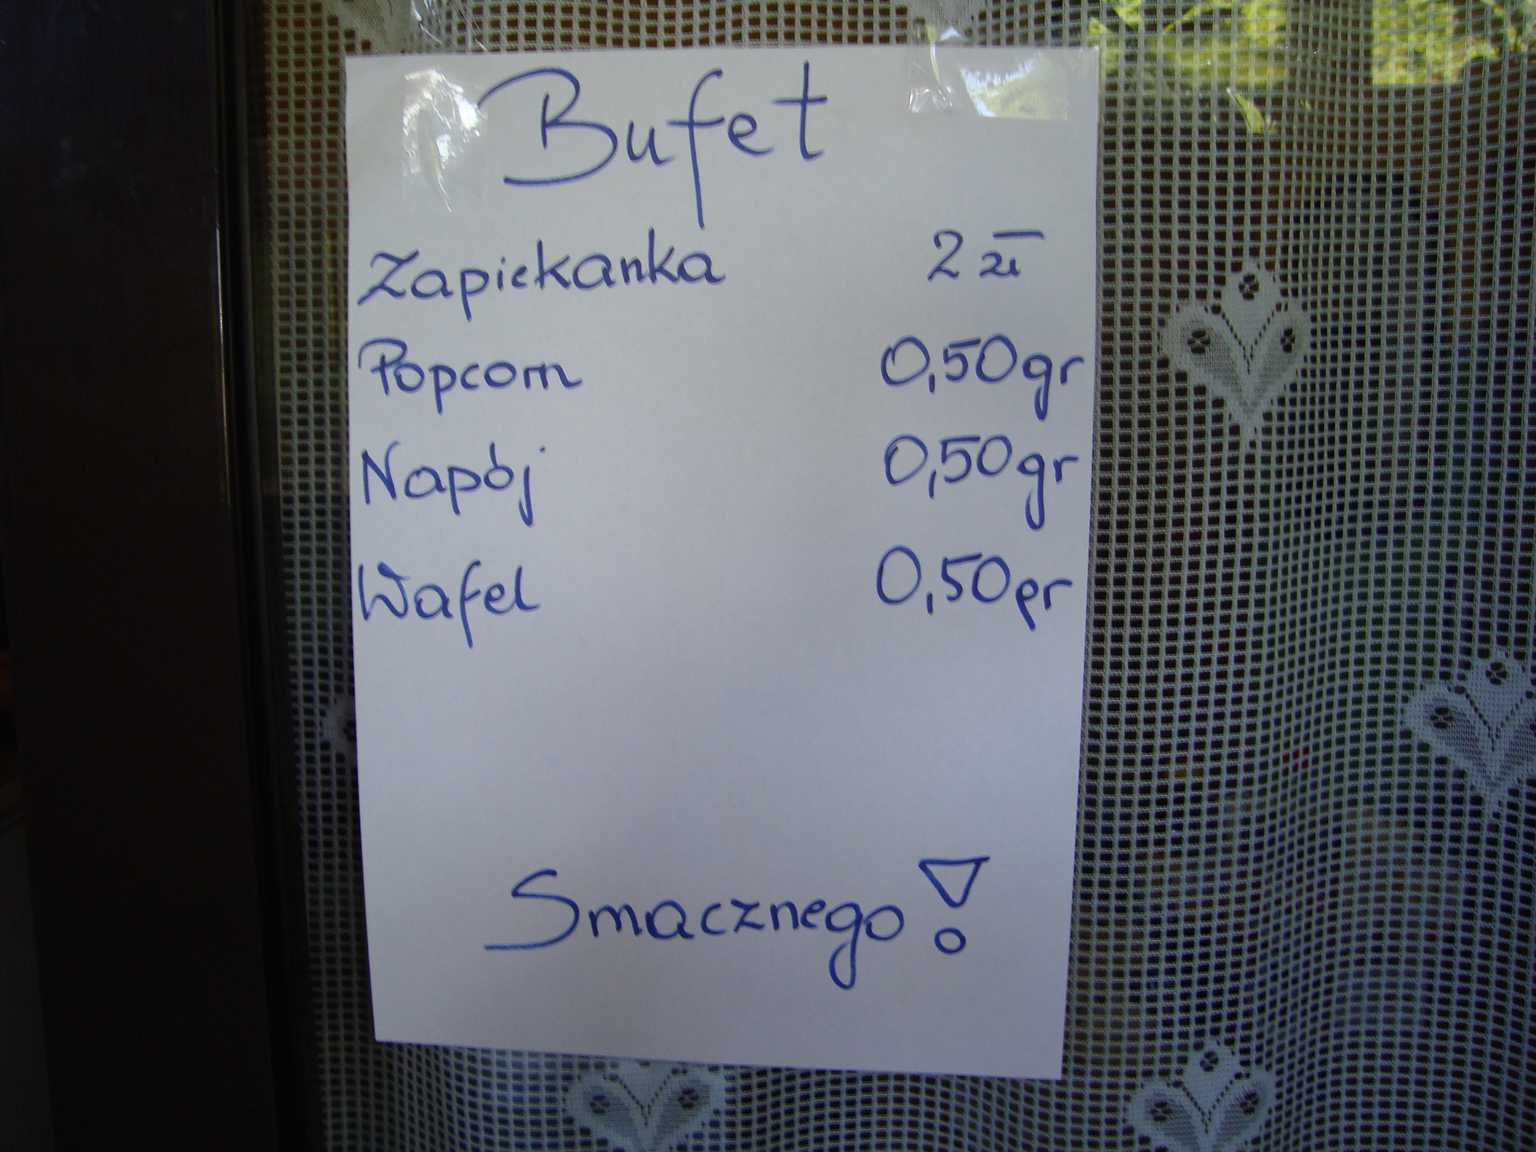 Bufet
Zapiekanka 2 zł
Popcorn 0,50 gr
Napój 0,50 gr
Wafel 0,50 gr
Smacznego!